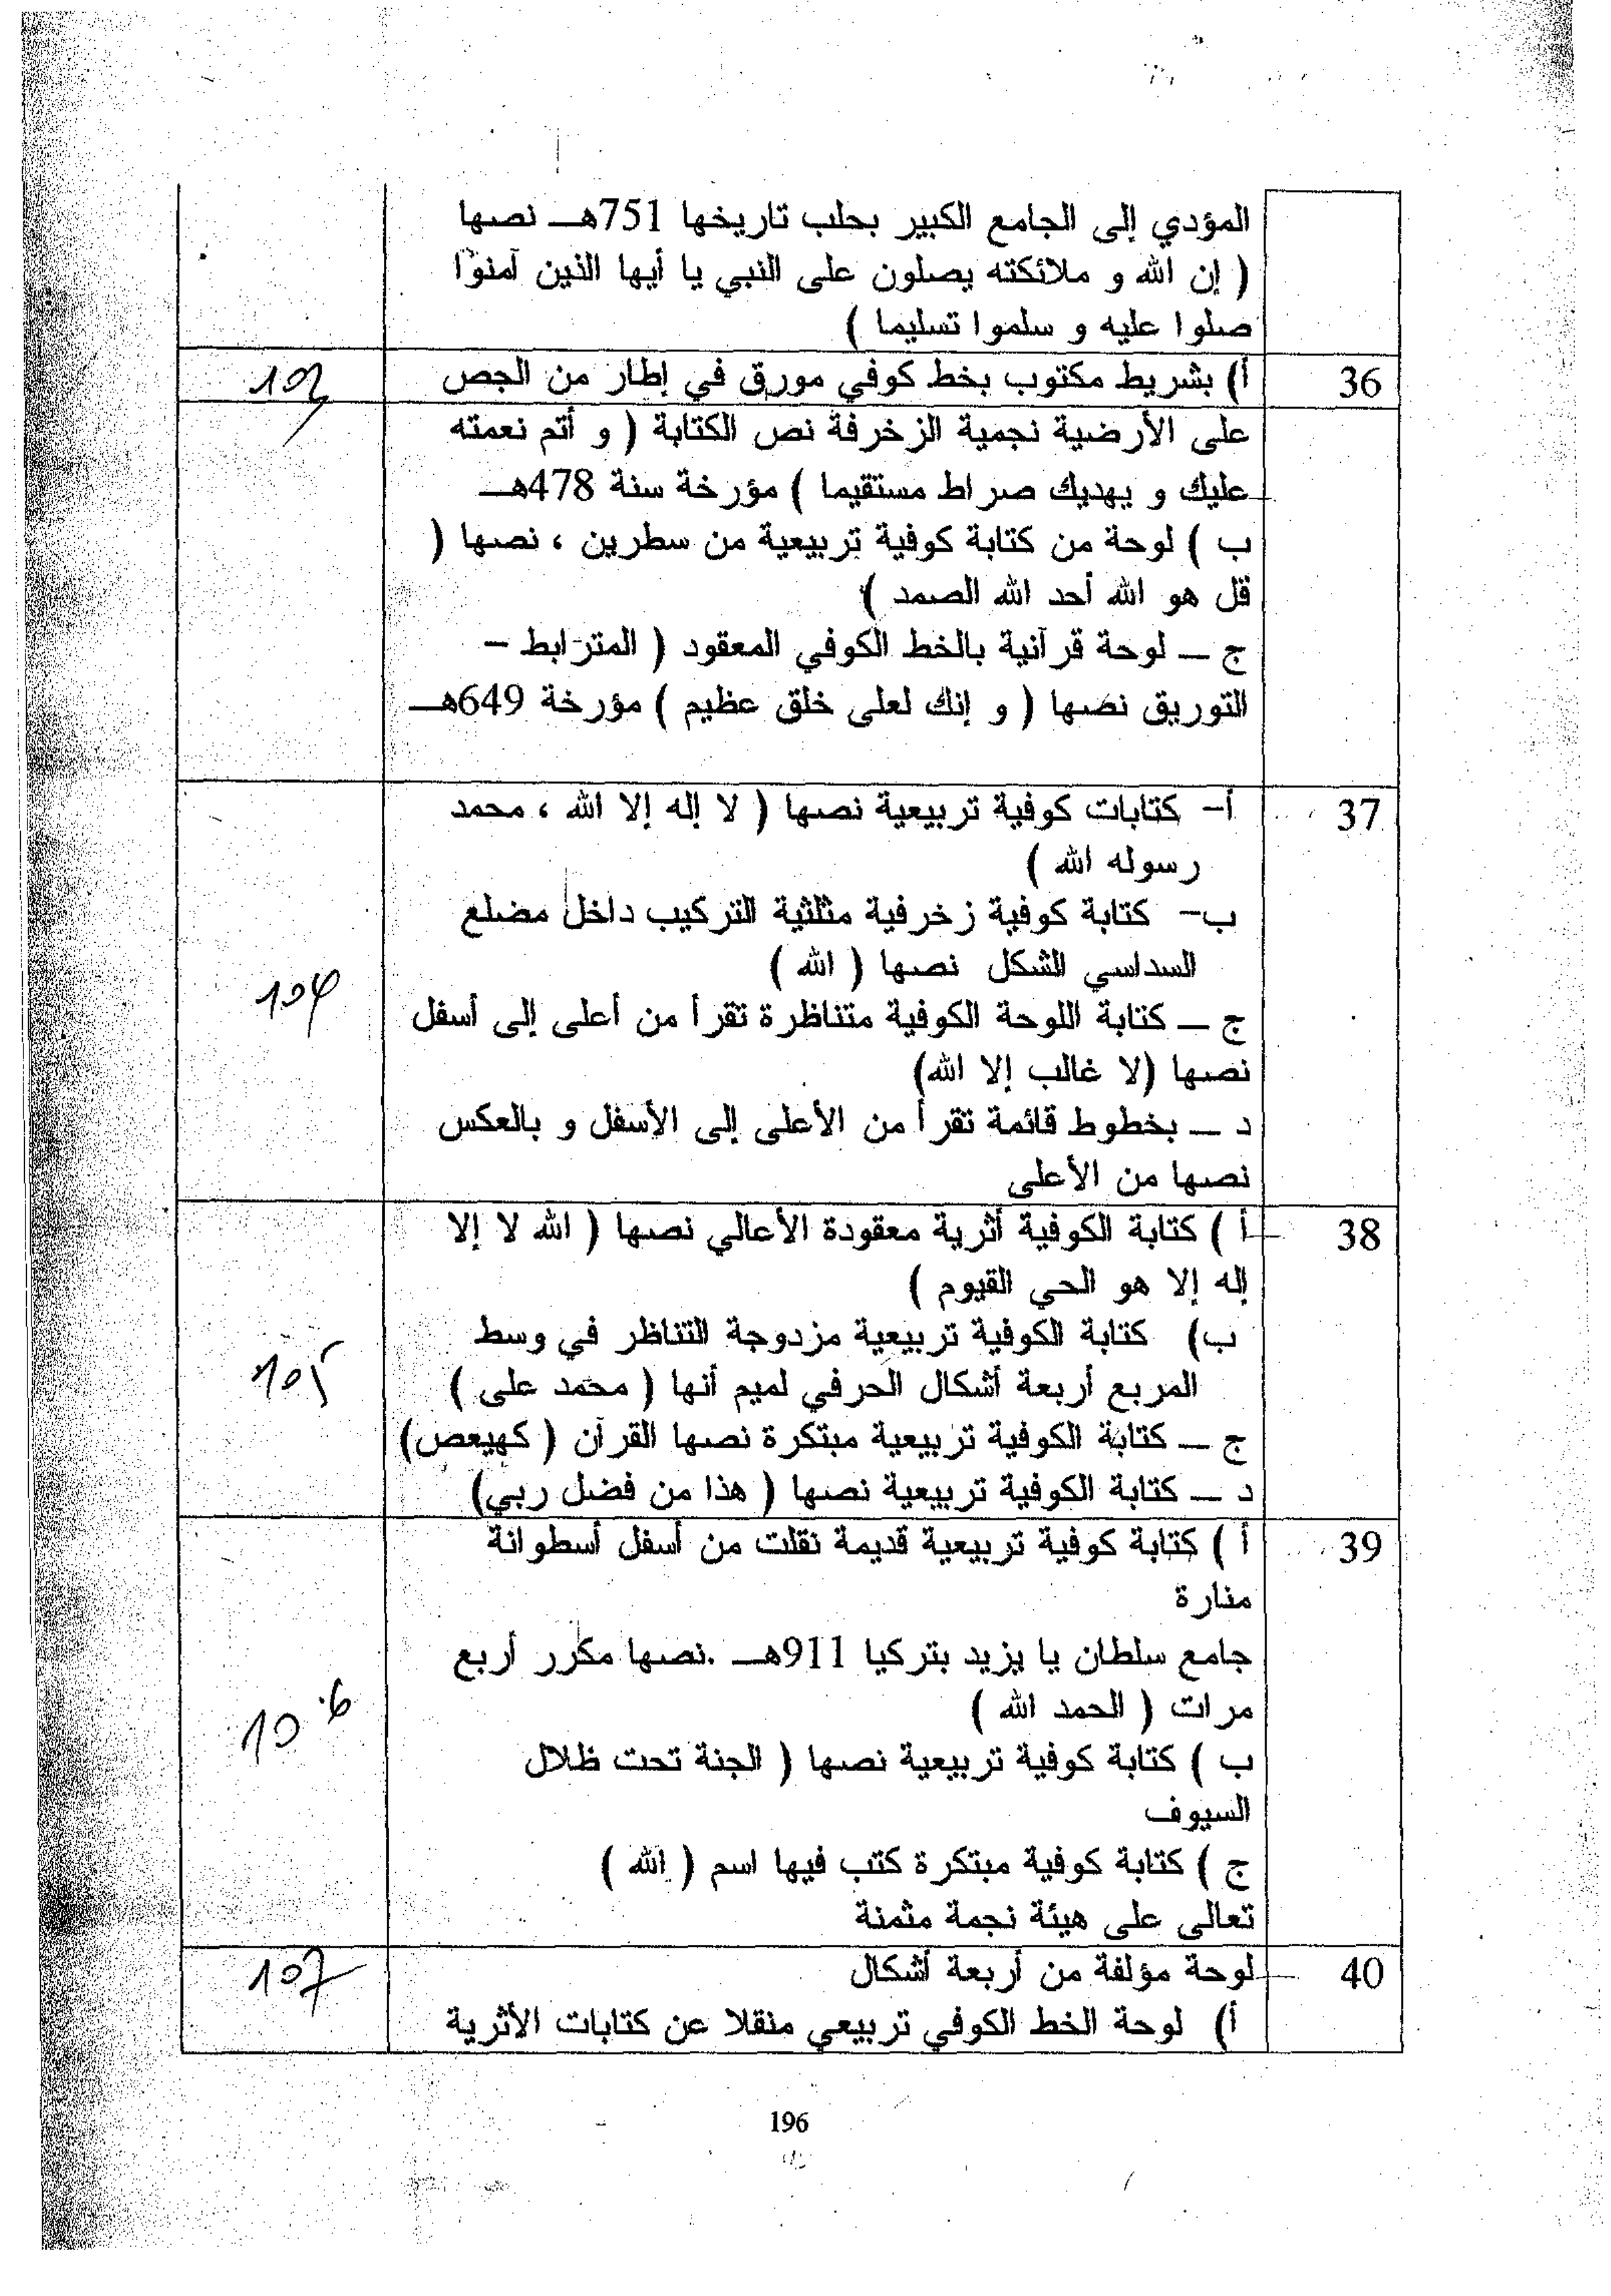 المؤدي إلى الجامع الكبير بحلب تاريخها 751هـ نصها
( إن الله و ملائكته يصلون على النبي يا أيها الذين آمنوا
صلوا عليه و سلموا تسليما )
36 أ) بشريط مكتوب بخط كوفي مورق في إطار من الجص 103
على الأرضية نجمية الزخرفة نص الكتابة ( و أتم نعمته
عليك و يهديك صراط مستقيما ) مؤرخة سنة 478هـ
ب ) لوحة من كتابة كوفية تربيعية من سطرين ، نصها (
قل هو الله أحد الله الصمد )
ج ـ لوحة قرآنية بالخط الكوفي المعقود ( المترابط –
التوريق نصها ( و إنك لعلى خلق عظيم ) مؤرخة 649هـ
37 أ- كتابات كوفية تربيعية نصها ( لا إله إلا الله ، محمد
رسوله الله )
ب- كتابة كوفية زخرفية مثلثية التركيب داخل مضلع
السداسي الشكل نصها ( الله )
104
ج ـ كتابة اللوحة الكوفية متناظرة تقرأ من أعلى إلى أسفل
نصها (لا غالب إلا الله)
د ـ بخطوط قائمة تقرأ من الأعلى إلى الأسفل و بالعكس
نصها من الأعلى
38 أ ) كتابة الكوفية أثرية معقودة الأعالي نصها ( الله لا إلا
إله إلا هو الحي القيوم )
ب) كتابة الكوفية تربيعية مزدوجة التناظر في وسط
المربع أربعة أشكال الحرفي لميم أنها ( محمد على ) 105
ج ـ كتابة الكوفية تربيعية مبتكرة نصها القرآن ( كهيعص)
د ـ كتابة الكوفية تربيعية نصها ( هذا من فضل ربي)
39 أ ) كتابة كوفية تربيعية قديمة نقلت من أسفل أسطوانة
منارة
جامع سلطان يا يزيد بتركيا 911هـ .نصها مكرر أربع
مرات ( الحمد الله ) 106
ب ) كتابة كوفية تربيعية نصها ( الجنة تحت ظلال
السيوف
ج ) كتابة كوفية مبتكرة كتب فيها اسم ( الله )
تعالى على هيئة نجمة مثمنة
40 لوحة مؤلفة من أربعة أشكال 107
أ) لوحة الخط الكوفي تربيعي منقلا عن كتابات الأثرية
196